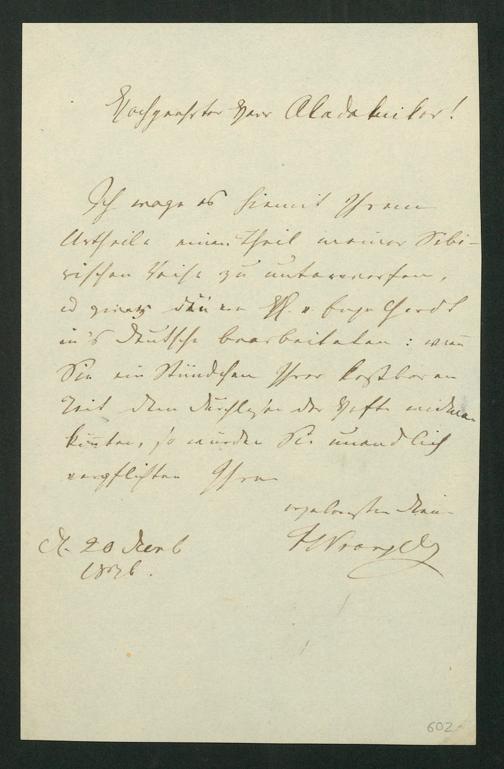 Hochgeehrter Herr Akademiker!
Ich wage es hiemit Ihrem
Urtheile einen Theil meiner Sibi-
rischen Reise zu unterwerfen,
v. Engelhardt
in's Deutsche bearbeiteten: wenn
Sie ein Stündchen Ihrer kostbaren
Zeit dem Durchlesen der Hefte widmen
könnten, so würden Sie unendlich
verpflichten Ihren
ergebensten Diener
FWrangell
d. 20
602